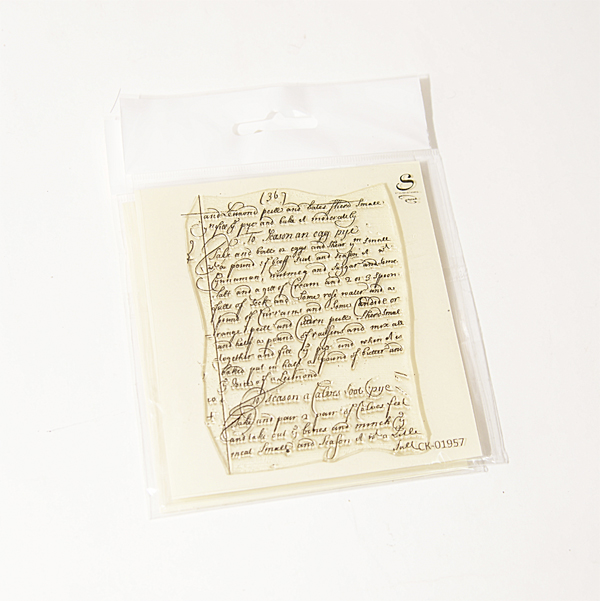 (367
and Lemond peele and dates slised small
fill yr pye and bake it moderately
To season an egg pye
Take and boile 10 eggs and shear ym small
a pound of beeff suet and season it wt
Cinnamon, nutmeg and suggar and some
salt and a gill of Cream and 2 or 3 spoon
fulls of Sack and some rose water and a
pound of Currains and some Candid or
range peele and Cittern peele slised small
and half a pound of raissins and mix all
together and fill yr pye and when it is
baked put in half a pound of butter and
yr juice of a Lemond
To season a Calves foot pye
Take and pair 2 pair of Calves feet
and take out yr bones and mince yr
meat small and season it wt a little
salt
S
CK-01957